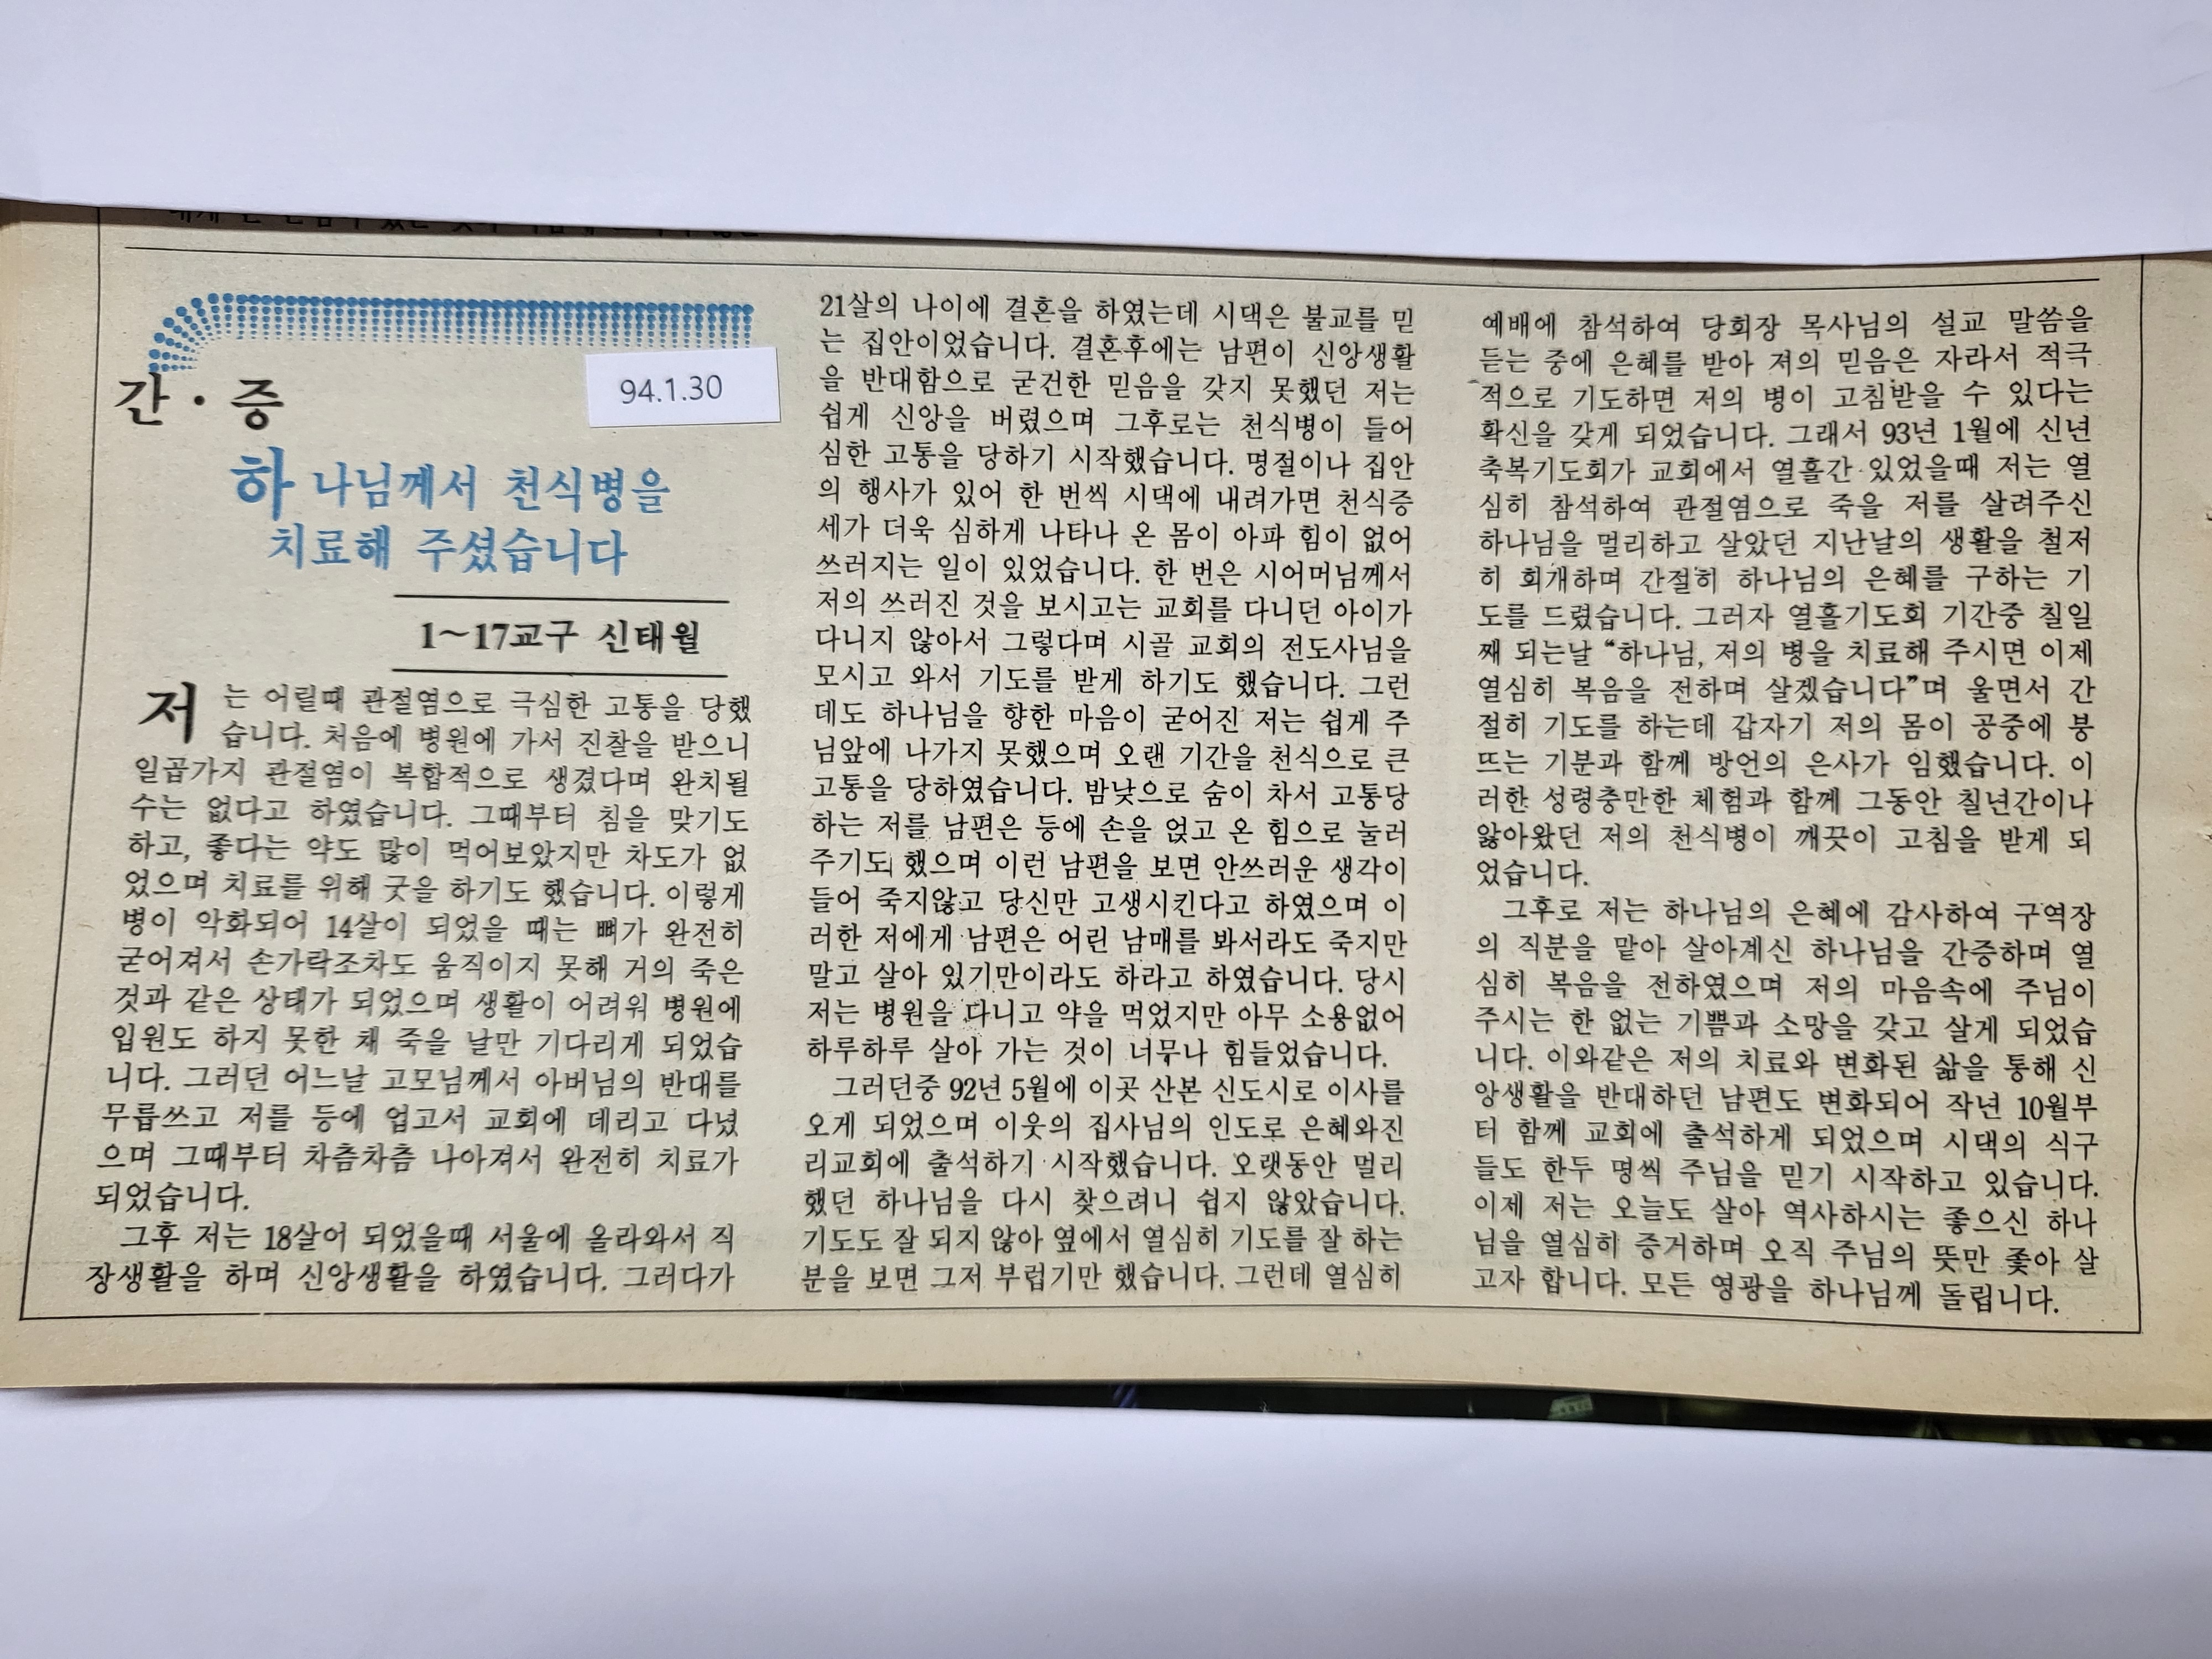 간·증
94.1.30
하나님께서 천식병을
치료해 주셨습니다
1~17교구 신태월
저는 어릴때 관절염으로 극심한 고통을 당했
습니다. 처음에 병원에 가서 진찰을 받으니
일곱가지 관절염이 복합적으로 생겼다며 완치될
수는 없다고 하였습니다. 그때부터 침을 맞기도
하고, 좋다는 약도 많이 먹어보았지만 차도가 없
었으며 치료를 위해 굿을 하기도 했습니다. 이렇게
병이 악화되어 14살이 되었을 때는 뼈가 완전히
굳어져서 손가락조차도 움직이지 못해 거의 죽은
것과 같은 상태가 되었으며 생활이 어려워 병원에
입원도 하지 못한 채 죽을 날만 기다리게 되었습
니다. 그러던 어느날 고모님께서 아버님의 반대를
무릅쓰고 저를 등에 업고서 교회에 데리고 다녔
으며 그때부터 차츰차츰 나아져서 완전히 치료가
되었습니다.
그후 저는 18살어 되었을때 서울에 올라와서 직
장생활을 하며 신앙생활을 하였습니다. 그러다가
21살의 나이에 결혼을 하였는데 시댁은 불교를 믿
는 집안이었습니다. 결혼후에는 남편이 신앙생활
을 반대함으로 굳건한 믿음을 갖지 못했던 저는
쉽게 신앙을 버렸으며 그후로는 천식병이 들어
심한 고통을 당하기 시작했습니다. 명절이나 집안
의 행사가 있어 한 번씩 시댁에 내려가면 천식증
세가 더욱 심하게 나타나 온 몸이 아파 힘이 없어
쓰러지는 일이 있었습니다. 한 번은 시어머님께서
저의 쓰러진 것을 보시고는 교회를 다니던 아이가
다니지 않아서 그렇다며 시골 교회의 전도사님을
모시고 와서 기도를 받게 하기도 했습니다. 그런
데도 하나님을 향한 마음이 굳어진 저는 쉽게 주
님앞에 나가지 못했으며 오랜 기간을 천식으로 큰
고통을 당하였습니다. 밤낮으로 숨이 차서 고통당
하는 저를 남편은 등에 손을 얹고 온 힘으로 눌러
주기도 했으며 이런 남편을 보면 안쓰러운 생각이
들어 죽지않고 당신만 고생시킨다고 하였으며 이
러한 저에게 남편은 어린 남매를 봐서라도 죽지만
말고 살아 있기만이라도 하라고 하였습니다. 당시
저는 병원을 다니고 약을 먹었지만 아무 소용없어
하루하루 살아 가는 것이 너무나 힘들었습니다.
그러던중 92년 5월에 이곳 산본 신도시로 이사를
오게 되었으며 이웃의 집사님의 인도로 은혜와진
리교회에 출석하기 시작했습니다. 오랫동안 멀리
했던 하나님을 다시 찾으려니 쉽지 않았습니다.
기도도 잘 되지 않아 옆에서 열심히 기도를 잘 하는
분을 보면 그저 부럽기만 했습니다. 그런데 열심히
예배에 참석하여 당회장 목사님의 설교 말씀을
듣는 중에 은혜를 받아 저의 믿음은 자라서 적극
적으로 기도하면 저의 병이 고침받을 수 있다는
확신을 갖게 되었습니다. 그래서 93년 1월에 신년
축복기도회가 교회에서 열흘간 있었을때 저는 열
심히 참석하여 관절염으로 죽을 저를 살려주신
하나님을 멀리하고 살았던 지난날의 생활을 철저
히 회개하며 간절히 하나님의 은혜를 구하는 기
도를 드렸습니다. 그러자 열흘기도회 기간중 칠일
째 되는날 “하나님, 저의 병을 치료해 주시면 이제
열심히 복음을 전하며 살겠습니다”며 울면서 간
절히 기도를 하는데 갑자기 저의 몸이 공중에 붕
뜨는 기분과 함께 방언의 은사가 임했습니다. 이
러한 성령충만한 체험과 함께 그동안 칠년간이나
앓아왔던 저의 천식병이 깨끗이 고침을 받게 되
었습니다.
그후로 저는 하나님의 은혜에 감사하여 구역장
의 직분을 맡아 살아계신 하나님을 간증하며 열
심히 복음을 전하였으며 저의 마음속에 주님이
주시는 한 없는 기쁨과 소망을 갖고 살게 되었습
니다. 이와같은 저의 치료와 변화된 삶을 통해 신
앙생활을 반대하던 남편도 변화되어 작년 10월부
터 함께 교회에 출석하게 되었으며 시댁의 식구
들도 한두 명씩 주님을 믿기 시작하고 있습니다.
이제 저는 오늘도 살아 역사하시는 좋으신 하나
님을 열심히 증거하며 오직 주님의 뜻만 좇아 살
고자 합니다. 모든 영광을 하나님께 돌립니다.